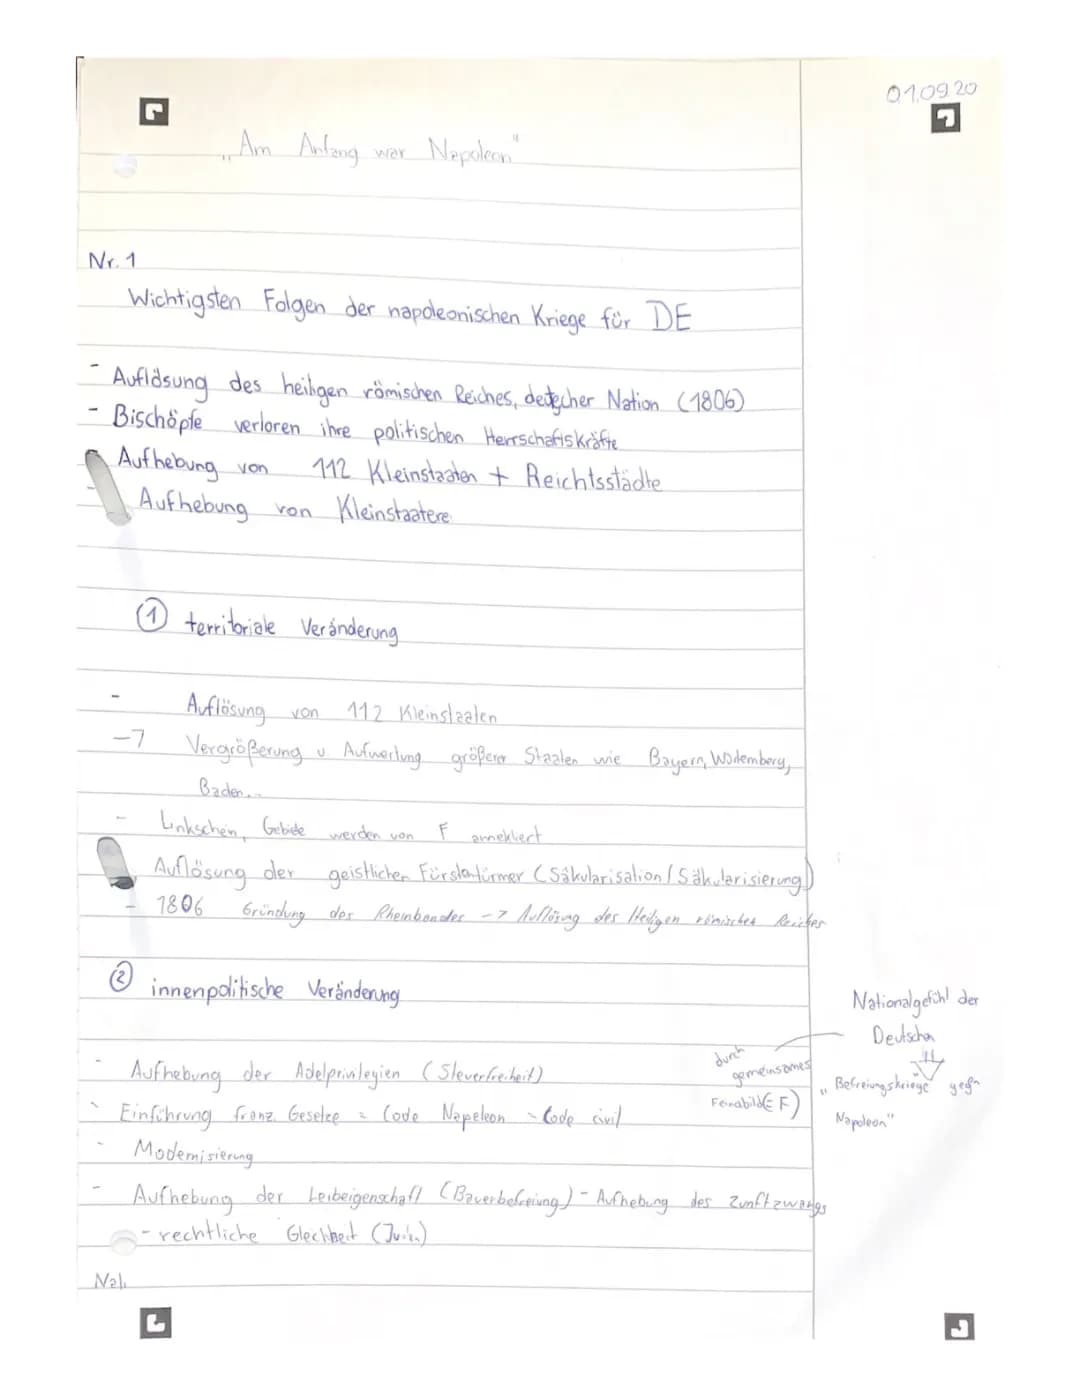 01.09.20
„Am Anfang war Napoleon"
Nr. 1
Wichtigsten Folgen der napoleonischen Kriege für DE
- Auflösung des heiligen römischen Reiches, deutscher Nation (1806)
- Bischöpfe verloren ihre politischen Herrschaftskräfte
Aufhebung von 112 Kleinstaaten + Reichtsstädte
Aufhebung von Kleinstaatere
① territoriale Veränderung
- Auflösung von 112 Kleinstaaten
-7 Vergrößerung u. Aufwertung größerer Staaten wie Bayern, Würtemberg,
Baden...
- Linkschein, Gebiete werden von F annektiert
Auflösung der geistlichen Fürstentürmer (Säkularisation / Säkularisierung)
- 1806 Gründung des Rheinbundes -> Auflösung des Heiligen römischen Reiches
② innenpolitische Veränderung
- Aufhebung der Adelprivilegien (Steuerfreiheit)
- Einführung franz. Gesetze = Code Napoleon - Code civil
- Modernisierung
- Aufhebung der Leibeigenschaft (Bauerbefreiung) - Aufhebung des Zunftzwangs
- rechtliche Gleichheit (Juden)
Nationalgefühl der
Deutschen
durch
gemeinsames
Feinabild (F)
„Befreiungskriege gegen
Napoleon"